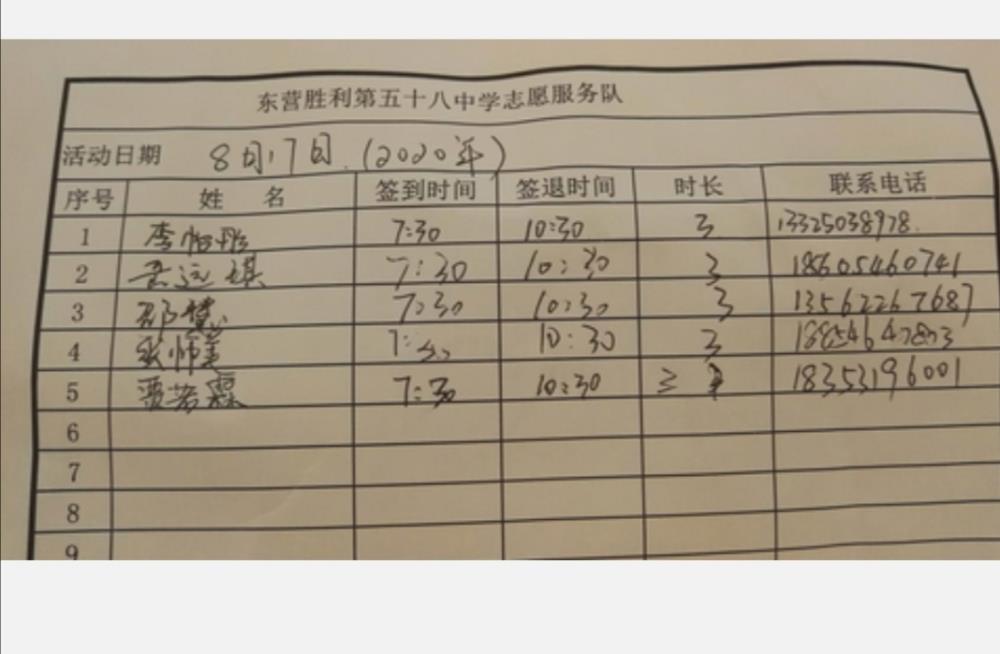 东营胜利第五十八中学志愿服务队
活动日期 8月17日.(2020年)
序号 姓 名 签到时间 签退时间 时长 联系电话
1 李怡彤 7:30 10:30 3 13325038978.
2 7:30 10:30 3 18605460741
3 邵慧 7:30 10:30 3 13562267687
4 张帅美 7:30 10:30 3
5 贾若霖 7:30 10:30 三 18353196001
6
7
8
9